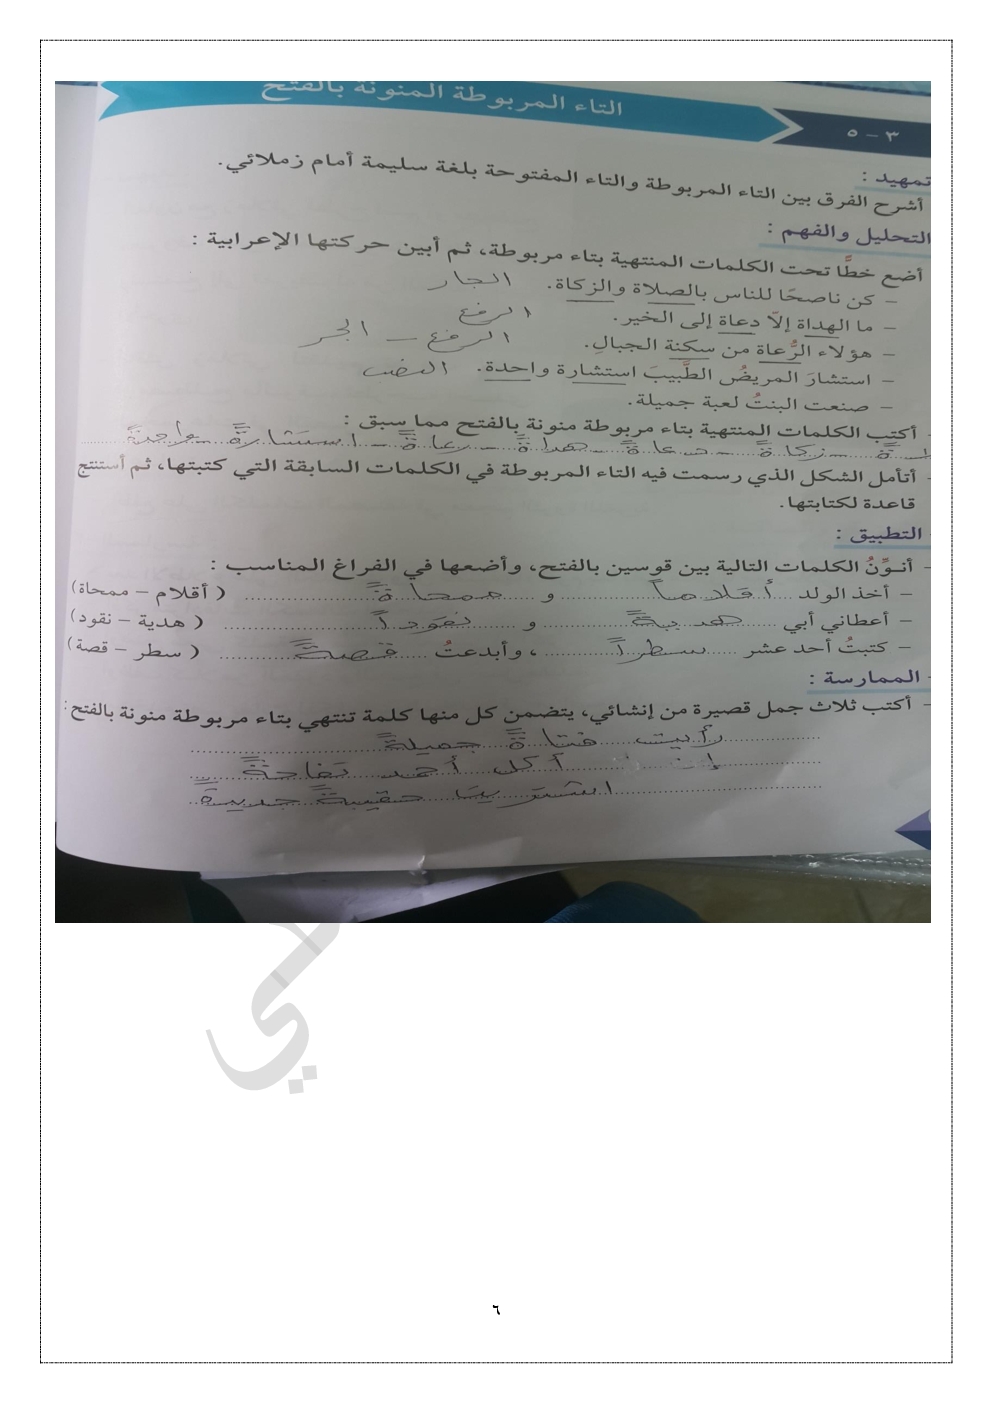 التاء المربوطة المنونة بالفتح
٣ – ٥
تمهيد :
أشرح الفرق بين التاء المربوطة والتاء المفتوحة بلغة سليمة أمام زملائي.
التحليل والفهم :
أضع خطًّا تحت الكلمات المنتهية بتاء مربوطة، ثم أبين حركتها الإعرابية :
– كن ناصحًا للناس بالصلاة والزكاة. الجار
– ما الهداة إلاّ دعاة إلى الخير. الرفع
– هؤلاء الرُّعاة من سكنة الجبالِ. الرفع – الجر
– استشارَ المريضُ الطَّبيبَ استشارة واحدة. النصب
– صنعت البنتُ لعبة جميلة.
- أكتب الكلمات المنتهية بتاء مربوطة منونة بالفتح مما سبق :
زكاةً – دعاةً – هداةً – رعاةً – استشارةً – واحدةً
- أتأمل الشكل الذي رسمت فيه التاء المربوطة في الكلمات السابقة التي كتبتها، ثم أستنتج
قاعدة لكتابتها.
التطبيق :
- أنوِّنُ الكلمات التالية بين قوسين بالفتح، وأضعها في الفراغ المناسب :
– أخذ الولد أقلاماً و ممحاةً ( أقلام – ممحاة)
– أعطاني أبي هديةً و نقوداً ( هدية – نقود)
– كتبتُ أحد عشر سطراً ، وأبدعتُ قصةً ( سطر – قصة)
- الممارسة :
– أكتب ثلاث جمل قصيرة من إنشائي، يتضمن كل منها كلمة تنتهي بتاء مربوطة منونة بالفتح:
رأيت فتاةً جميلةً
أكل أحمد تفاحةً
اشترينا حقيبةً جديدةً
٦